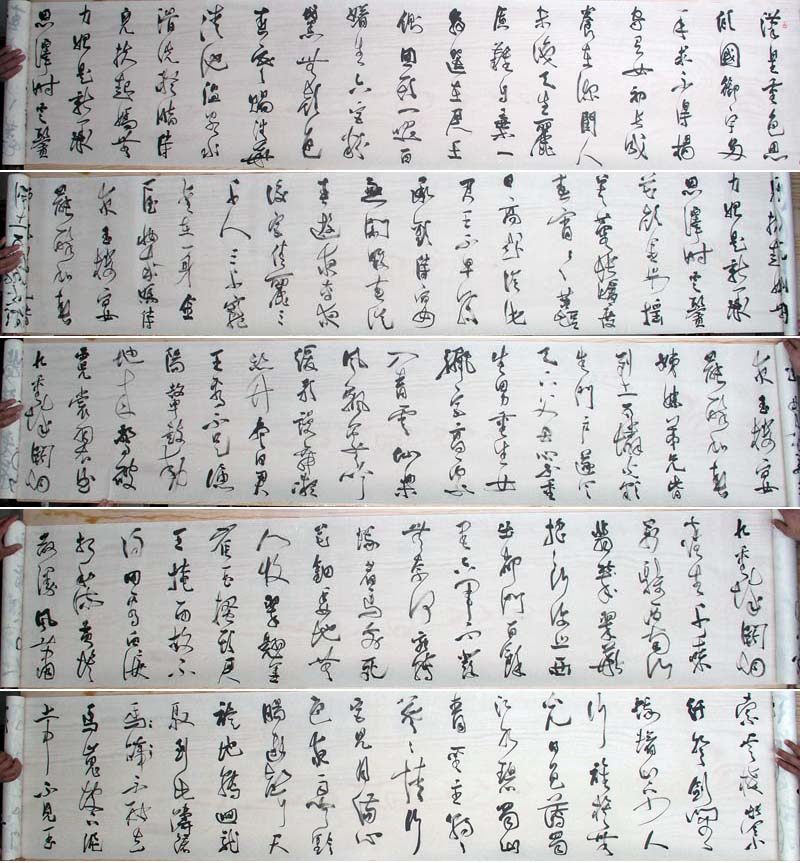 漢皇重色思
傾國御宇多
年求不得楊
家有女初長成
養在深閨人
未識天生麗
質難自棄一
朝選在君王
側回一笑百
媚生六宮粉
黛無顏色
春寒賜浴華
清池溫泉水
滑洗凝脂侍
兒扶起嬌無
力始是新承
恩澤時雲鬢
力始是新承
恩澤時雲鬢
花顏金步搖
芙蓉帳暖度
春宵苦短
日高起從此
君王不早朝
承歡侍宴
無閑暇春從
春遊夜專夜
後宮佳麗三
千人三千寵
愛在一身金
屋妝成嬌侍
夜玉樓宴
罷醉和春
夜玉樓宴
罷醉和春
姊妹弟兄皆
列土可憐光彩
生門戶遂令
天下父母心不重
生男重生女
驪宮高處
入青雲仙樂
風飄處處聞
緩歌謾舞凝
絲竹盡日君
王看不足漁
陽鼙鼓動
地來驚破
霓裳羽衣曲
九重城闕煙
九重城闕煙
塵生千乘
萬騎西南行
翠華
搖搖行復止西
出都門百餘
里六軍不發
無奈何宛轉
蛾眉馬前死
花鈿委地無
人收翠翹金
雀玉搔頭君
王掩面救不
得回看血淚
相和流黃埃
散漫風蕭
索雲棧縈紆
登劍閣
峨嵋山下少人
行旌旗無
光日色薄蜀
江水碧蜀山
青聖主朝朝
暮暮情行
宮見月傷心
色夜雨聞鈴
腸斷聲天
旋地轉迴龍
馭到此躊躇
不能去
馬嵬坡下泥
土中不見玉